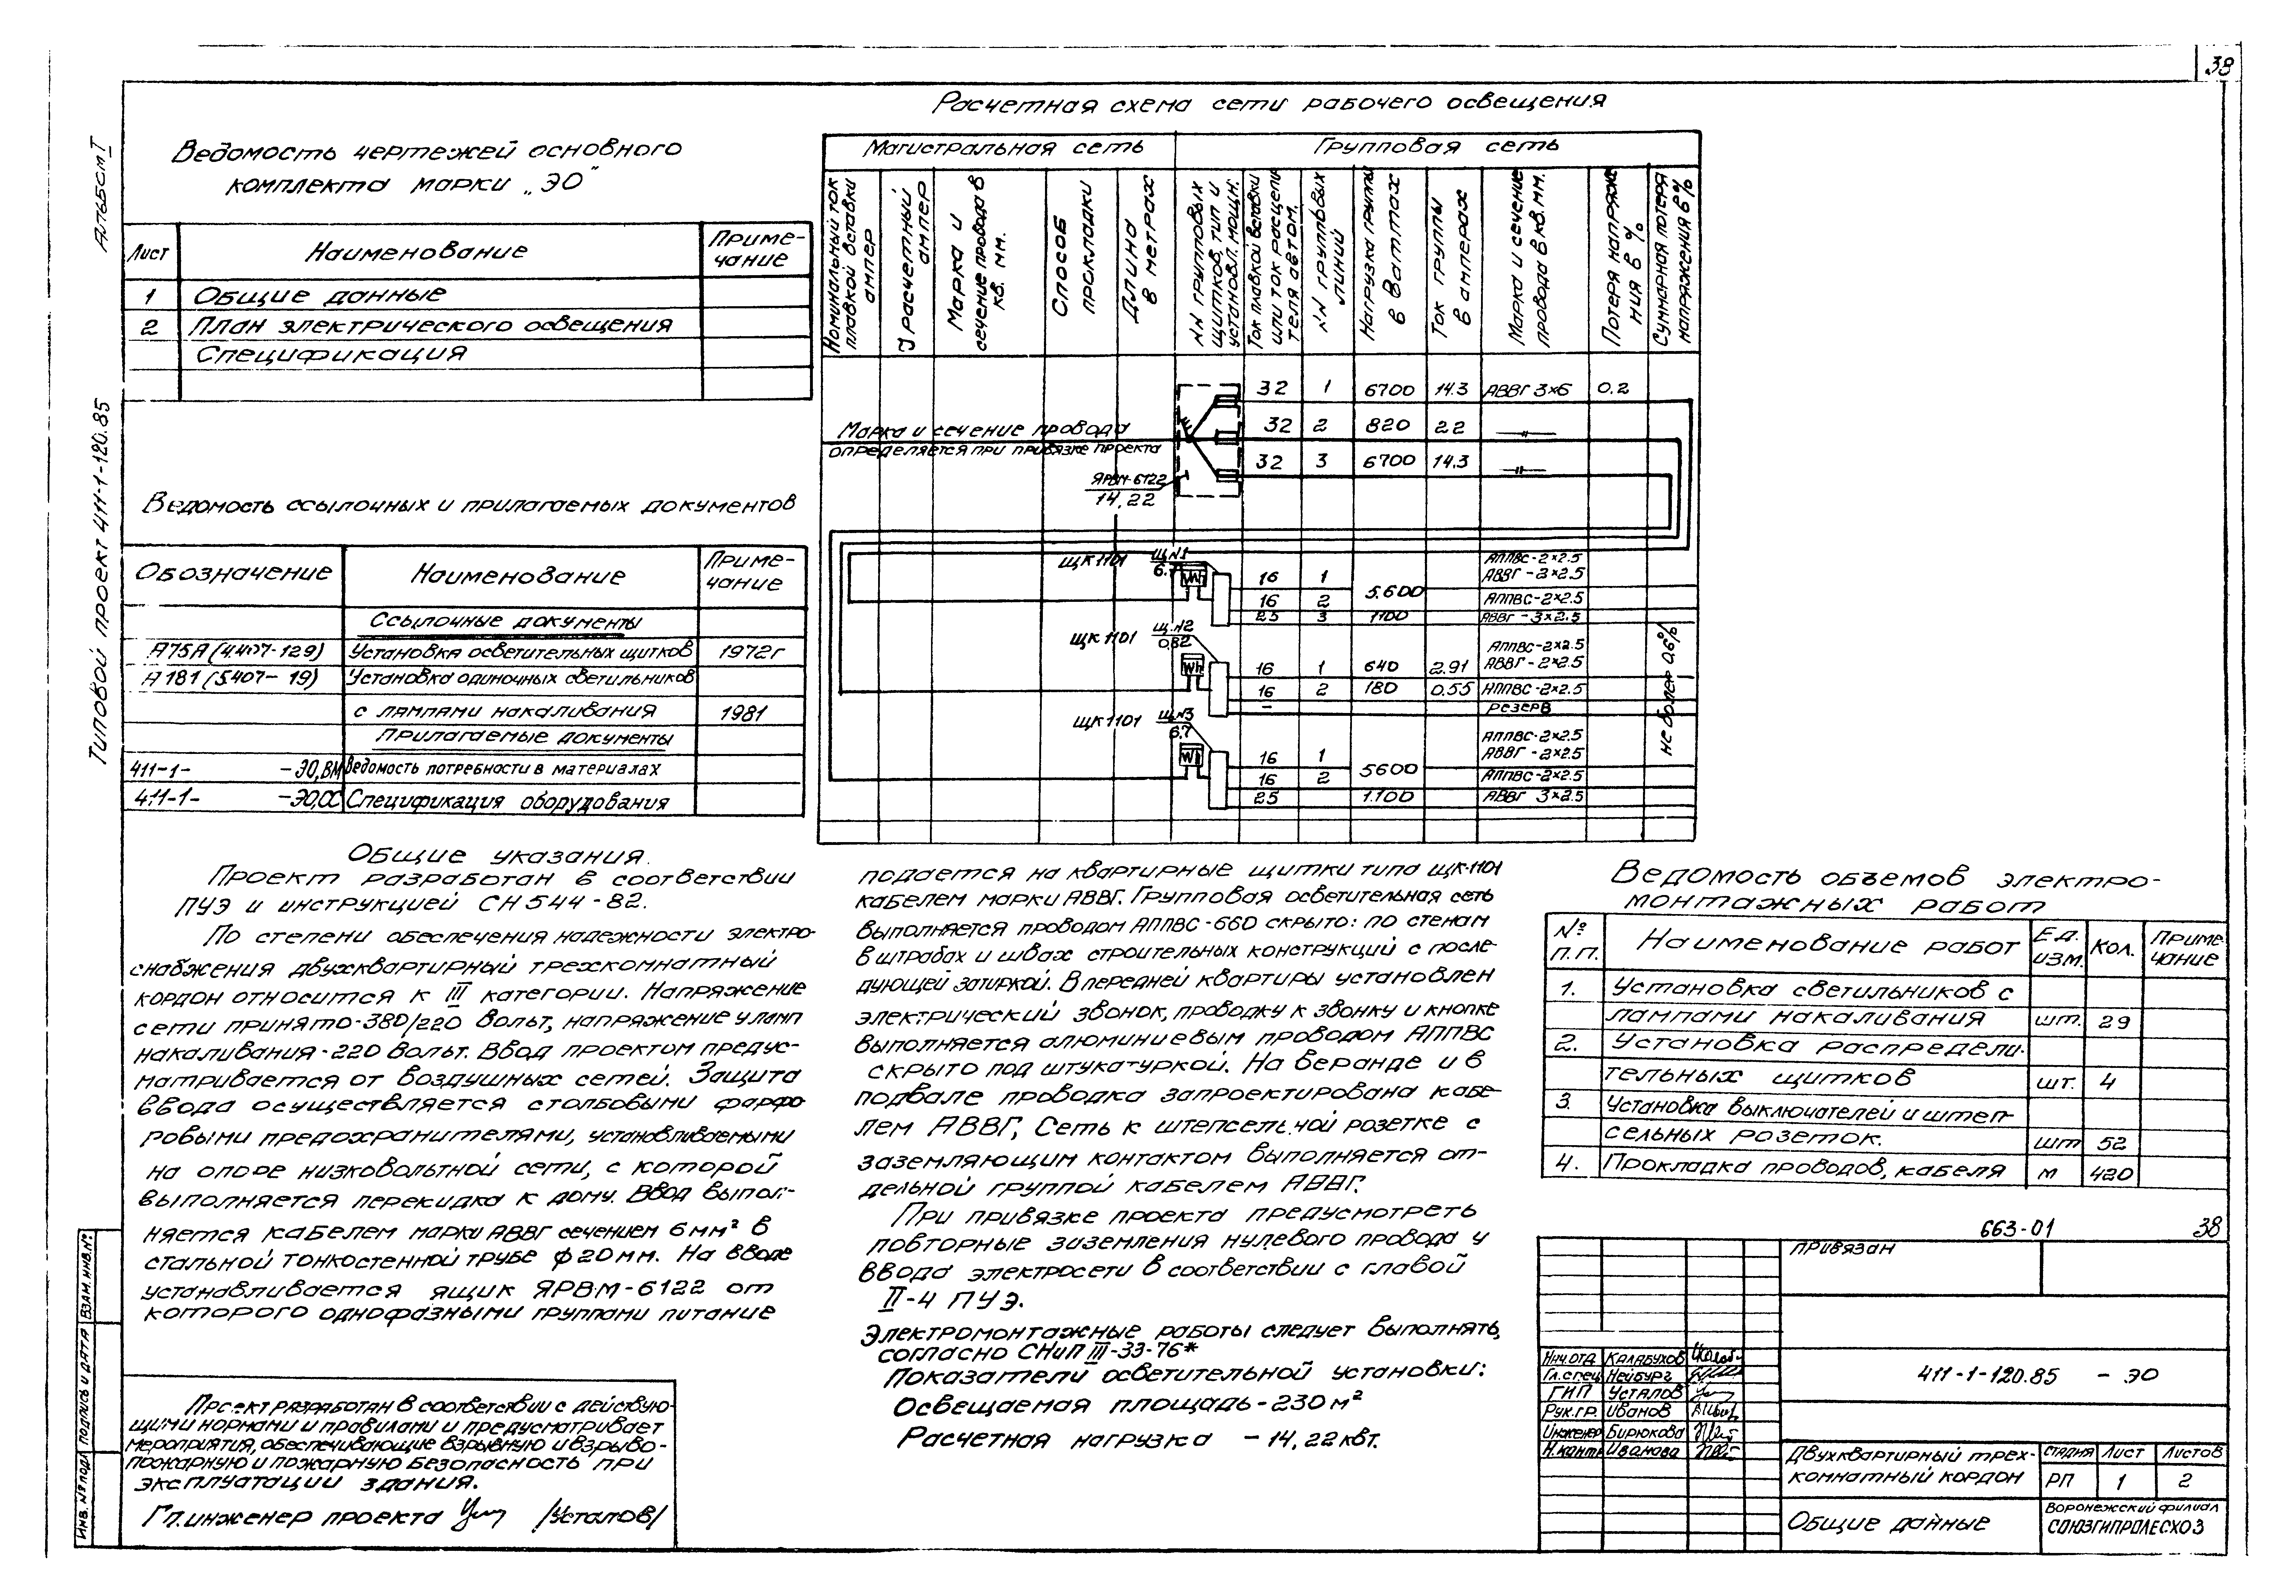 38
Альбом I
Типовой проект 411-1-120.85
Ведомость чертежей основного
комплекта марки „ЭО"
Лист
Наименование
Приме-
чание
1 Общие данные
2 План электрического освещения
Спецификация
Ведомость ссылочных и прилагаемых документов
Обозначение
Наименование
Приме-
чание
Ссылочные документы
А75А (4.407-129) Установка осветительных щитков 1972г
А181 (5.407-19) Установка одиночных светильников
с лампами накаливания 1981
Прилагаемые документы
411-1- -ЭО,ВМ Ведомость потребности в материалах
411-1- -ЭО,СО Спецификация оборудования
Расчетная схема сети рабочего освещения
Магистральная сеть
Групповая сеть
Номинальный ток
плавкой вставки
ампер
J расчетный
ампер
Марка и
сечение провода в
кв. мм.
Способ
прокладки
Длина
в метрах
NN групповых
щитков, тип и
установл. мощн.
Ток плавкой вставки
или ток расцепи-
теля автом.
NN групповых
линий
Нагрузка группы
в Ваттах
Ток группы
в амперах
Марка и сечение
провода в кв. мм.
Потеря напряже-
ния в %
Суммарная потеря
напряжения в %
32 1 6700 14.3 АВВГ 3×6 0.2
Марка и сечение провода
определяется при привязке проекта
32 2 820 22 —"—
32 3 6700 14.3 —"—
ЯРВМ-6122
14,22
ЩК 1101
Щ.N1
6.7
Wh
АППВС-2×2.5
16 1 АВВГ-2×2.5
5.600
16 2 АППВС-2×2.5
25 3 1100 АВВГ-3×2.5
ЩК 1101
Щ.N2
0,82
Wh
АППВС-2×2.5
16 1 640 2.91 АВВГ-2×2.5
16 2 180 0.55 АППВС-2×2.5
– резерв
ЩК 1101
Щ.N3
6.7
Wh
АППВС-2×2.5
16 1 АВВГ-2×2.5
5600
16 2 АППВС-2×2.5
25 1.100 АВВГ 3×2.5
не более 0.6%
Общие указания.
Проект разработан в соответствии
ПУЭ и инструкцией СН 544-82.
По степени обеспечения надежности электро-
снабжения двухквартирный трехкомнатный
кордон относится к III категории. Напряжение
сети принято-380/220 Вольт, напряжение у ламп
накаливания-220 Вольт. Ввод проектом предус-
матривается от воздушных сетей. Защита
ввода осуществляется столбовыми фарфо-
ровыми предохранителями, устанавливаемыми
на опоре низковольтной сети, с которой
выполняется перекидка к дому. Ввод выпол-
няется кабелем марки АВВГ сечением 6мм² в
стальной тонкостенной трубе ф20мм. На вводе
устанавливается ящик ЯРВМ-6122 от
которого однофазными группами питание
подается на квартирные щитки типа щк-1101
кабелем марки АВВГ. Групповая осветительная сеть
выполняется проводом АППВС-660 скрыто: по стенам
в штрабах и швах строительных конструкций с после-
дующей затиркой. В передней квартиры установлен
электрический звонок, проводку к звонку и кнопке
выполняется алюминиевым проводом АППВС
скрыто под штукатуркой. На веранде и в
подвале проводка запроектирована кабе-
лем АВВГ, Сеть к штепсельной розетке с
заземляющим контактом выполняется от-
дельной группой кабелем АВВГ.
При привязке проекта предусмотреть
повторные заземления нулевого провода у
ввода электросети в соответствии с главой
II-4 ПУЭ.
Электромонтажные работы следует выполнять,
согласно СНиП III-33-76*
Показатели осветительной установки:
Освещаемая площадь-230м²
Расчетная нагрузка -14,22 квт.
Проект разработан в соответствии с действую-
щими нормами и правилами и предусматривает
мероприятия, обеспечивающие взрывную и взрыво-
пожарную и пожарную безопасность при
эксплуатации здания.
Гл. инженер проекта /Усталов/
Ведомость объемов электро-
монтажных работ
№
п.п.
Наименование работ
Ед.
изм.
Кол.
Приме-
чание
1. Установка светильников с
лампами накаливания шт. 29
2. Установка распредели-
тельных щитков шт. 4
3. Установка выключателей и штеп-
сельных розеток. шт 52
4. Прокладка проводов, кабеля м 420
663-01 38
Привязан
Нач.отд Калабухов
Гл.спец Нейбург
ГИП Усталов
Рук.гр. Иванов
Инженер Бирюкова
Н.контр Иванова
411-1-120.85 - ЭО
Двухквартирный трех-
комнатный кордон
стадия Лист Листов
РП 1 2
Общие данные
Воронежский филиал
СОЮЗГИПРОЛЕСХОЗ
Инв. № подл
Подпись и дата
Взам. инв. №